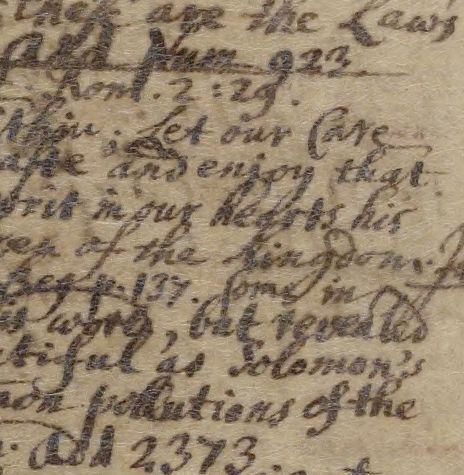 these are the Laws
Add Num 923
Rom. 2:29.
thin. Let our Care
and enjoy that
writ in our hearts his
of the kingdom.
Beg p. 137. Some in
word, but revealed
tiful as Solomon's
mon pollutions of the
Add 2373.